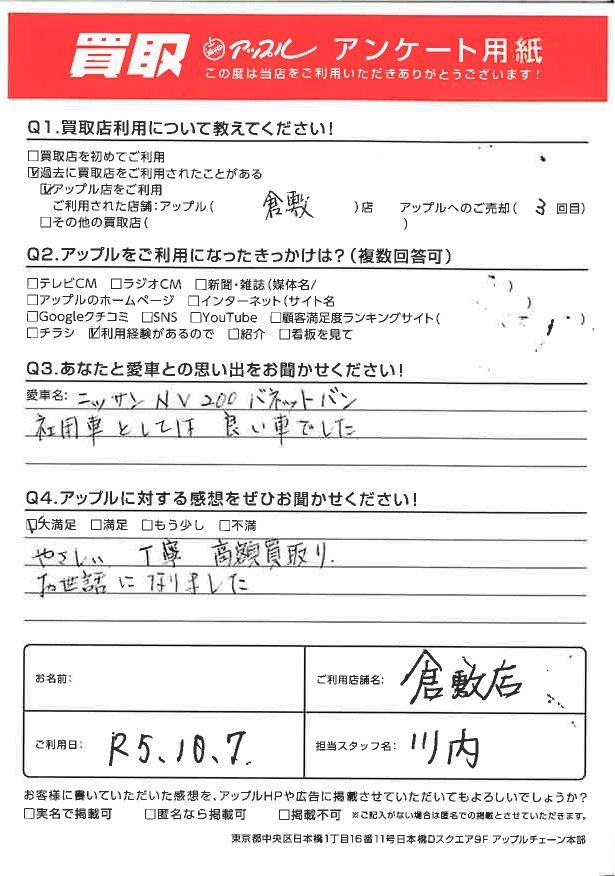 買取 アップル アンケート用紙
この度は当店をご利用いただきありがとうございます!
Q1.買取店利用について教えてください!
□買取店を初めてご利用
☑過去に買取店をご利用されたことがある
☑アップル店をご利用
ご利用された店舗:アップル( 倉敷 )店 アップルへのご売却( 3 回目)
□その他の買取店( )
Q2.アップルをご利用になったきっかけは?(複数回答可)
□テレビCM □ラジオCM □新聞・雑誌(媒体名/ )
□アップルのホームページ □インターネット(サイト名 )
□Googleクチコミ □SNS □YouTube □顧客満足度ランキングサイト( )
□チラシ ☑利用経験があるので □紹介 □看板を見て
Q3.あなたと愛車との思い出をお聞かせください!
愛車名: ニッサン NV200 バネットバン
社用車としては 良い車でした
Q4.アップルに対する感想をぜひお聞かせください!
☑大満足 □満足 □もう少し □不満
やさしい 丁寧 高額買取り.
お世話になりました
お名前: ご利用店舗名: 倉敷店
ご利用日: R5.10.7. 担当スタッフ名: 川内
お客様に書いていただいた感想を、アップルHPや広告に掲載させていただいてもよろしいでしょうか?
□実名で掲載可 □匿名なら掲載可 □掲載不可 ※ご記入がない場合は匿名での掲載とさせていただきます。
東京都中央区日本橋1丁目16番11号日本橋Dスクエア9F アップルチェーン本部